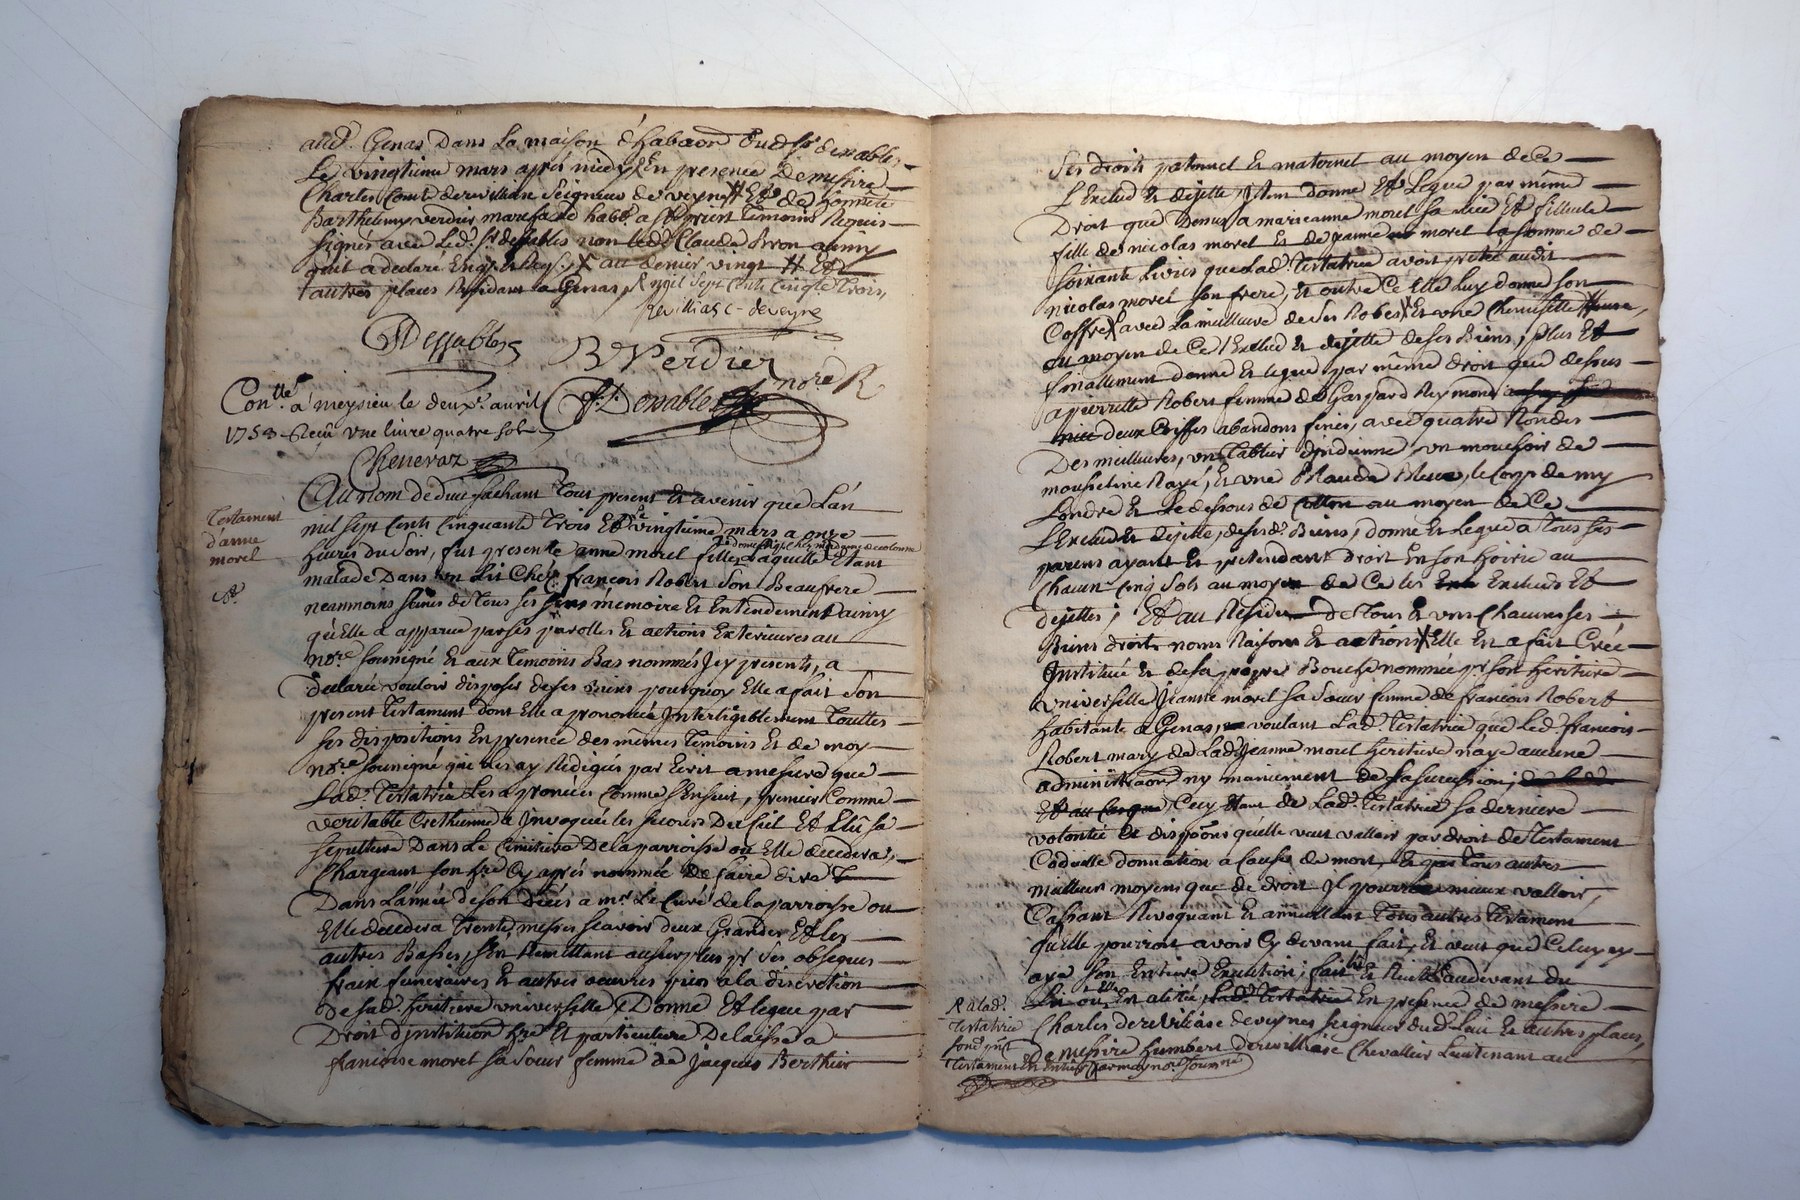 aud. Genas Dans La maison d'habaon Dud Sr. denables
Le vingtieme mars apres midy En presence De messire
Charles Comte derevilliasc Seigneur de veynes Et de honnete
Barthelemy verdier marchand habt. a Temoins Requis
signés avec Led. Sr. desables non Led. Claude Biron ainsy
quil a declaré Enquis Requis X au denier vingt # Et
autres places Residant a Genas, R mil Sept Cents Cinqte. Trois,
Revilliasc - deveyne
Dessables
B Verdier
Conllé. a meysieu le deuxe. avril
Denables nore R.
1753 Reçu une livre quatre sols
Cheneraz
Testament d'anne morel
Au Nom de dieu sachant Tous present Et avenir que L'an
mil sept Cents Cinquante Trois Et Le vingtieme mars a onze
heures du soir, fut presente anne morel fille Laquelle Etant
malade Dans un Lit Chéz francois Robert Son Beaufrere
neanmoins saines de Tous ses sens mémoire Et Entendement ainsy
qu'Elle a apparue par ses parolles Et actions Exterieures au
nore. soussigné Et aux Temoins Bas nommés Jcy presents, a
declaré vouloir disposer de ses Biens pourquoy Elle a fait Son
present Testament dont Elle a prononcée Jnterligiblement Touttes
ses dispositions En presence des mêmes Temoins Et de moy
nore. soussigné qui Les ay Rédigées par Ecrit a mesure que
Lad. Testatrice Les a pronceés Comme S'Ensuit, premier Comme
veritable Crethienne a Jnvoquée les secours Du Ciel Et Elû sa
sepulture Dans Le Cimitiere De la parroisse ou Elle decedera,
Chargeant son hre Cy après nommée De faire dire
Dans L'année de son Décés a mr. Le Curé de la parroisse ou
Elle decedera Trente messes scavoir deux Grandes Et Les
autres Basses, S'En Remettant au surplus pr ses obseques
fraix funeraires Et autres oeuvres pies a la discretion
De sad. heritiere universelle Donne Et legue par
Droit d'jnstitution hre. Et particuliere Delaisse a
francoise morel sa Soeur femme de jacques Berthier
Ses droits paternel Et maternel au moyen de Ce
L'Exclud Et dejette Jtem donne Et Legue par même
Droit que Dessus a marieanne morel sa niece Et filleule
fille de nicolas morel Et de jeanne morel la somme de
soixante Livres que Lad. Testatrice avoit prêté audit
nicolas morel son frere, Et outre Ce Elle Luy donne son
Coffre X avec La meilleure de ses Robes X Et une Chemisette
au moyen de Ce L'Exclud Et dejette de ses Biens; plus Et
finallement donne Et legue par même droit que dessus
a pierrette Robert femme de Gaspard Reymond
deux Coiffes abandons fines, avec quatre Rondes
Des meilleures, un Tablier d'jndienne, un mouchoir de
mousseline Rayé, Et une Blaude Bleue, le Corps de my
Londre Et Le dessous de Cotton au moyen de Ce
L'Exclud Et dejette, de sesd. Biens, donne Et Legue a Tous ses
parens ayants Et pretendant droit En son hoirie au
Chacun Cinq Sols au moyen de Ce les Excluds Et
dejettes; Et au Residu De Tous Et uns Chacun ses
Biens droits noms Raisons Et actions X Elle En a fait Créé
Jnstitué Et de sa propre Bouche nommée pr. son heritiere
universelle Jeanne morel sa Soeur femme de francois Robert
habitante a Genas, voulant Lad. Testatrice que Led. francois
Robert mary de Lad. Jeanne morel heritiere naye aucune
adminitraon ny maniement de sa succession,
Cecy Etant de Lad. Testatrice sa derniere
volontée Et dispoons quelle veut valloir par droit de Testament
Codicille donnation a Cause de mort, Et par Tous autres
meilleurs moyens que de droit Jl pourra mieux valloir,
Cassant Revoquant Et annullant Tous autres Testament
qu'Elle pourroit avoir Cy devant fait, Et veut que Celuy cy
aye son Entiere Execution; fait Et Recité au devant du
Lit ou Elle Est alitée, En presence de messire
Charles derevilliasc deveynes Seigneur dud. Lieu Et autres places,
de messire humbert derevilliasc Chevallier Lieutenant au
R a lad.
Testatrice
sond. pnt
Testament En Entier par moy nore. soussné